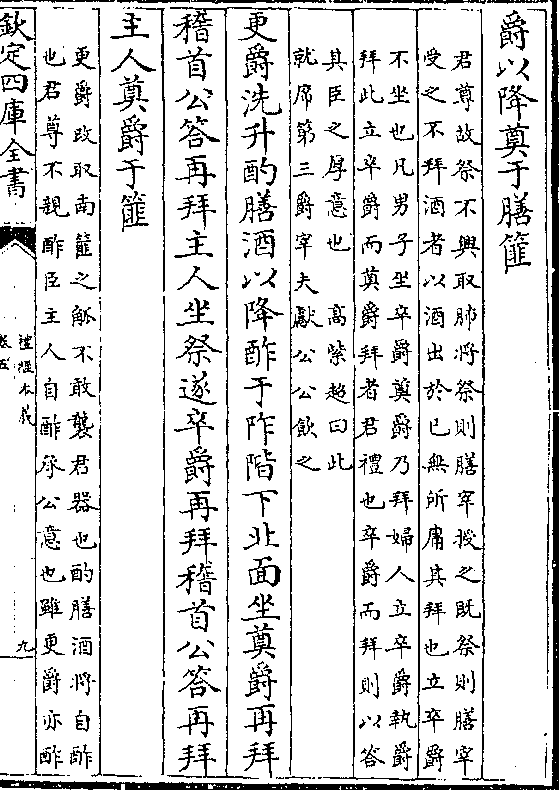 爵以降奠于膳篚
君尊故祭不興取肺將祭則膳宰授之既祭則膳宰
受之不拜酒者以酒出於已無所庸其拜也立卒爵
不坐也凡男子坐卒爵奠爵乃拜婦人立卒爵執爵
拜此立卒爵而奠爵拜者君禮也卒爵而拜則以答
其臣之厚意也　高紫超曰此
就席第三爵宰夫獻公公飲之
更爵洗升酌膳酒以降酢于阼階下北面坐奠爵再拜
稽首公答再拜主人坐祭遂卒爵再拜稽首公答再拜
主人奠爵于篚
更爵改取南篚之觚不敢襲君器也酌膳酒將自酢
也君尊不親酢臣主人自酢承公意也雖更爵亦酢
欽定四庫全書
禮經本義
卷五
九